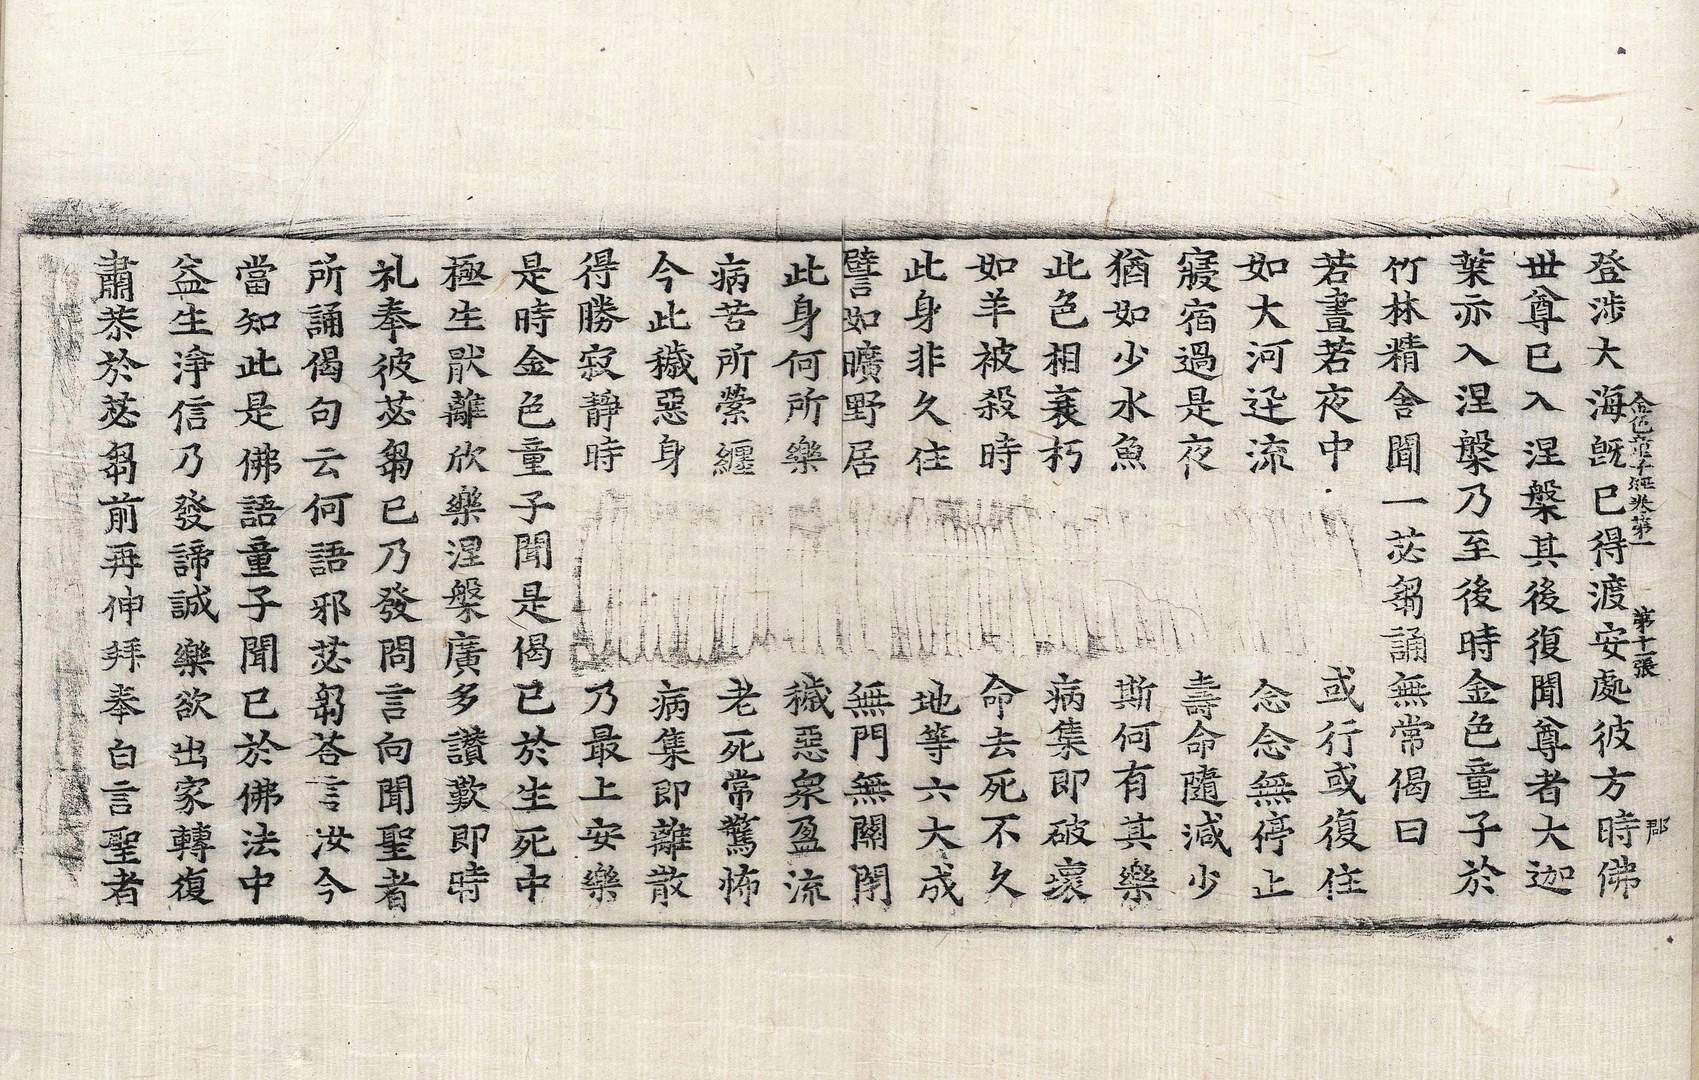 登涉大海旣已得渡安處彼方時佛
金色童子經卷第一 第十一張 郡
世尊已入涅槃其後復聞尊者大迦
葉亦入涅槃乃至後時金色童子於
竹林精舍聞一苾芻誦無常偈曰
若晝若夜中 或行或復住
如大河迅流 念念無停止
寢宿過是夜 壽命隨減少
猶如少水魚 斯何有其樂
此色相衰朽 病集即破壞
如羊被殺時 命去死不久
此身非久住 地等六大成
譬如曠野居 無門無關閉
此身何所樂 穢惡泉盈流
病苦所縈纏 老死常驚怖
今此穢惡身 病集即離散
得勝寂靜時 乃最上安樂
是時金色童子聞是偈已於生死中
極生猒離欣樂涅槃廣多讚歎即時
礼奉彼苾芻已乃發問言向聞聖者
所誦偈句云何語邪苾芻荅言汝今
當知此是佛語童子聞已於佛法中
益生淨信乃發諦誠樂欲出家轉復
肅恭於苾芻前再伸拜奉白言聖者